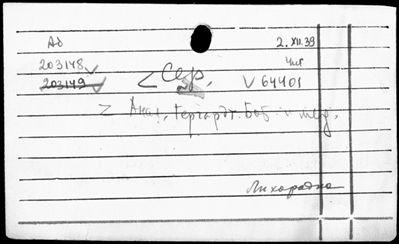 Ad 2. XII. 39
203148 ✓ Чит
203149 ✓ < Сер. V 64401
< Анат. Гергардт. Боб. и мед.
Лихорадка